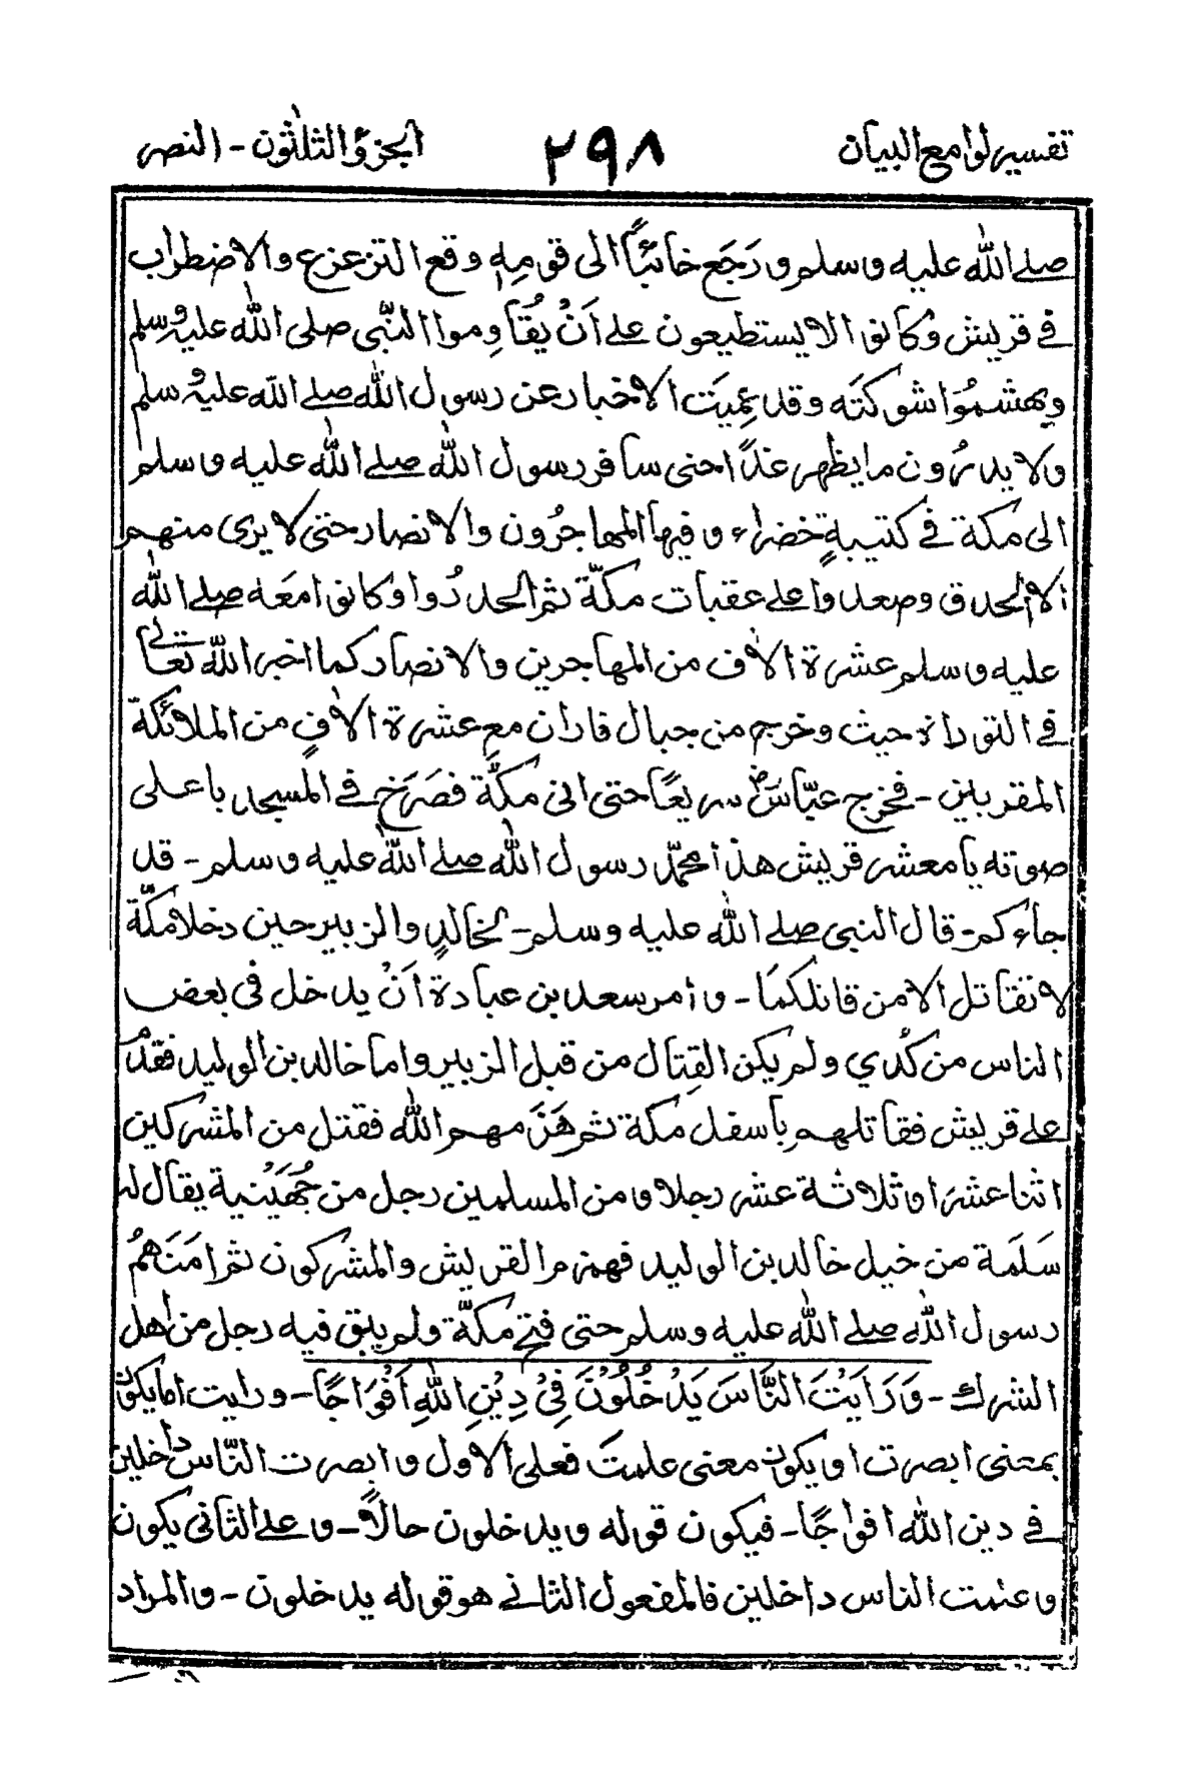 تفسير لوامع البيان ٢٩٨ الجزؤ الثلثون - النصر
صلے اللہ عليه وسلم و رَجَع خائباً الى قومِهٖ وقع التزعزع والاضطراب
فے قريش وُكانوا لا يستطيعون علے اَنْ يُقاوِموا النّبي صلى الله عليه وسلم
ويهشموُا شوكتَه وقد عمِيَت الاخبار عن رسول اللہ صلے اللہ عليه وسلم
ولا يدرُون ما يظهر غداً حتى سافر رسول اللہ صلے اللہ عليه وسلم
الى مكة فے كتيبةٍ خضراء وفيها المهاجرُون والانصار حتى لا يرى منهم
الا الحدق وصعدوا على عقبات مكّة ثم انحدرُوا وكانوا معَه صلے اللہ
عليه وسلم عشرة الاٰف من المهاجرين والانصار كما اخبر اللہ تعالى
فے التوراة حيث وخرج من جبال فاران مع عشرة الاٰفٍ من الملائكة
المقربين - فخرج عبّاسؓ سريعًا حتى اتى مكّة فصَرَخ فے المسجد باعلى
صوته يا معشر قريش هذا محمدٌ رسول اللہ صلے اللہ عليه وسلم - قد
جاءكم - قال النبي صلے اللہ عليه وسلم - لخالدٍ والزبير حين دخلا مكّة
لا تقاتل الا من قاتلكمَا - وامر سعد بن عبادة اَنْ يدخل فى بعض
الناس من كُدي ولم يكن القِتال من قبل الزبير واما خالد بن الوليد فقدم
علے قريش فقاتلهم باسفل مكة ثم هَزَمهم اللہ فقتل من المشركين
اثنا عشر او ثلاثة عشر رجلا ومن المسلمين رجل من جُهَيْنية يقال له
سَلَمة من خيل خالد بن الوليد فهزم القريش والمشركون ثم اٰمَنَهمُ
رسول اللہ صلے اللہ عليه وسلم حتى فتح مكّة ولم يبق فيه رجل من اهل
الشرك - وَرَاَيْتَ النَّاسَ يَدْخُلُوْنَ فِيْ دِيْنِ اللهِ اَفْوَاجًا - ورايت اما يكون
بمعنى ابصرت او يكون معنى علمتَ فعلى الاول وابصرت النّاس داخلين
فے دين اللہ افواجًا - فيكون قوله ويدخلون حالاً - وعلے الثانى يكون
وعلمت الناس داخلين فالمفعول الثانے هو قوله يدخلون - والمراد